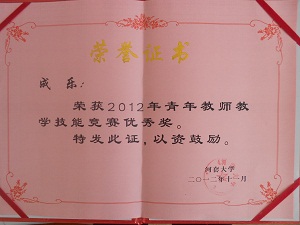 荣誉证书
成乐：
荣获2012年青年教师教
学技能竞赛优秀奖。
特发此证，以资鼓励。
河套大学
二〇一二年十一月